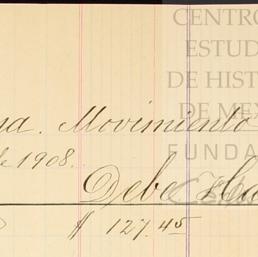 CENTRO
ESTUD
DE HIST
DE MEX
FUNDA
na. Movimiento
de 1908.
Debe Ha
$ 127.45